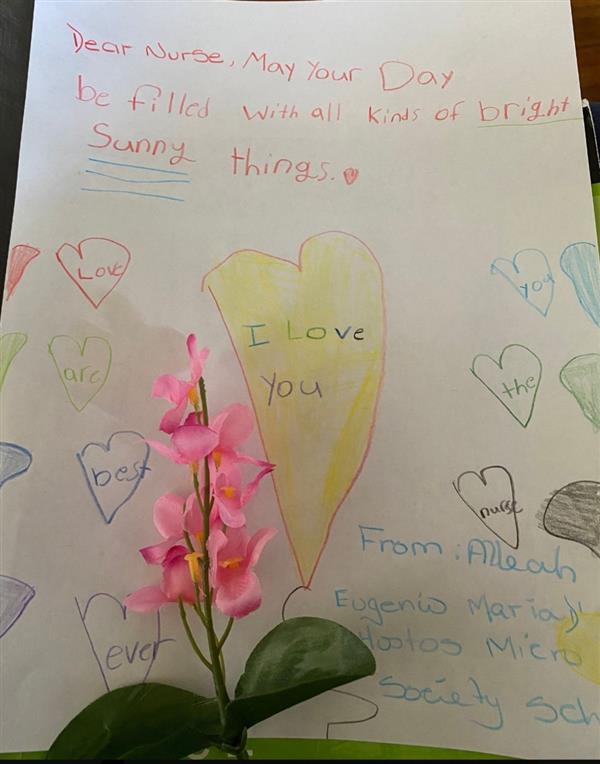 Dear Nurse, May Your Day
be filled with all kinds of bright
Sunny things.
I Love
You
Love you
are the
best nurse
ever
From: Alleah
Eugenio Maria D'
Hostos Micro
Society Sch